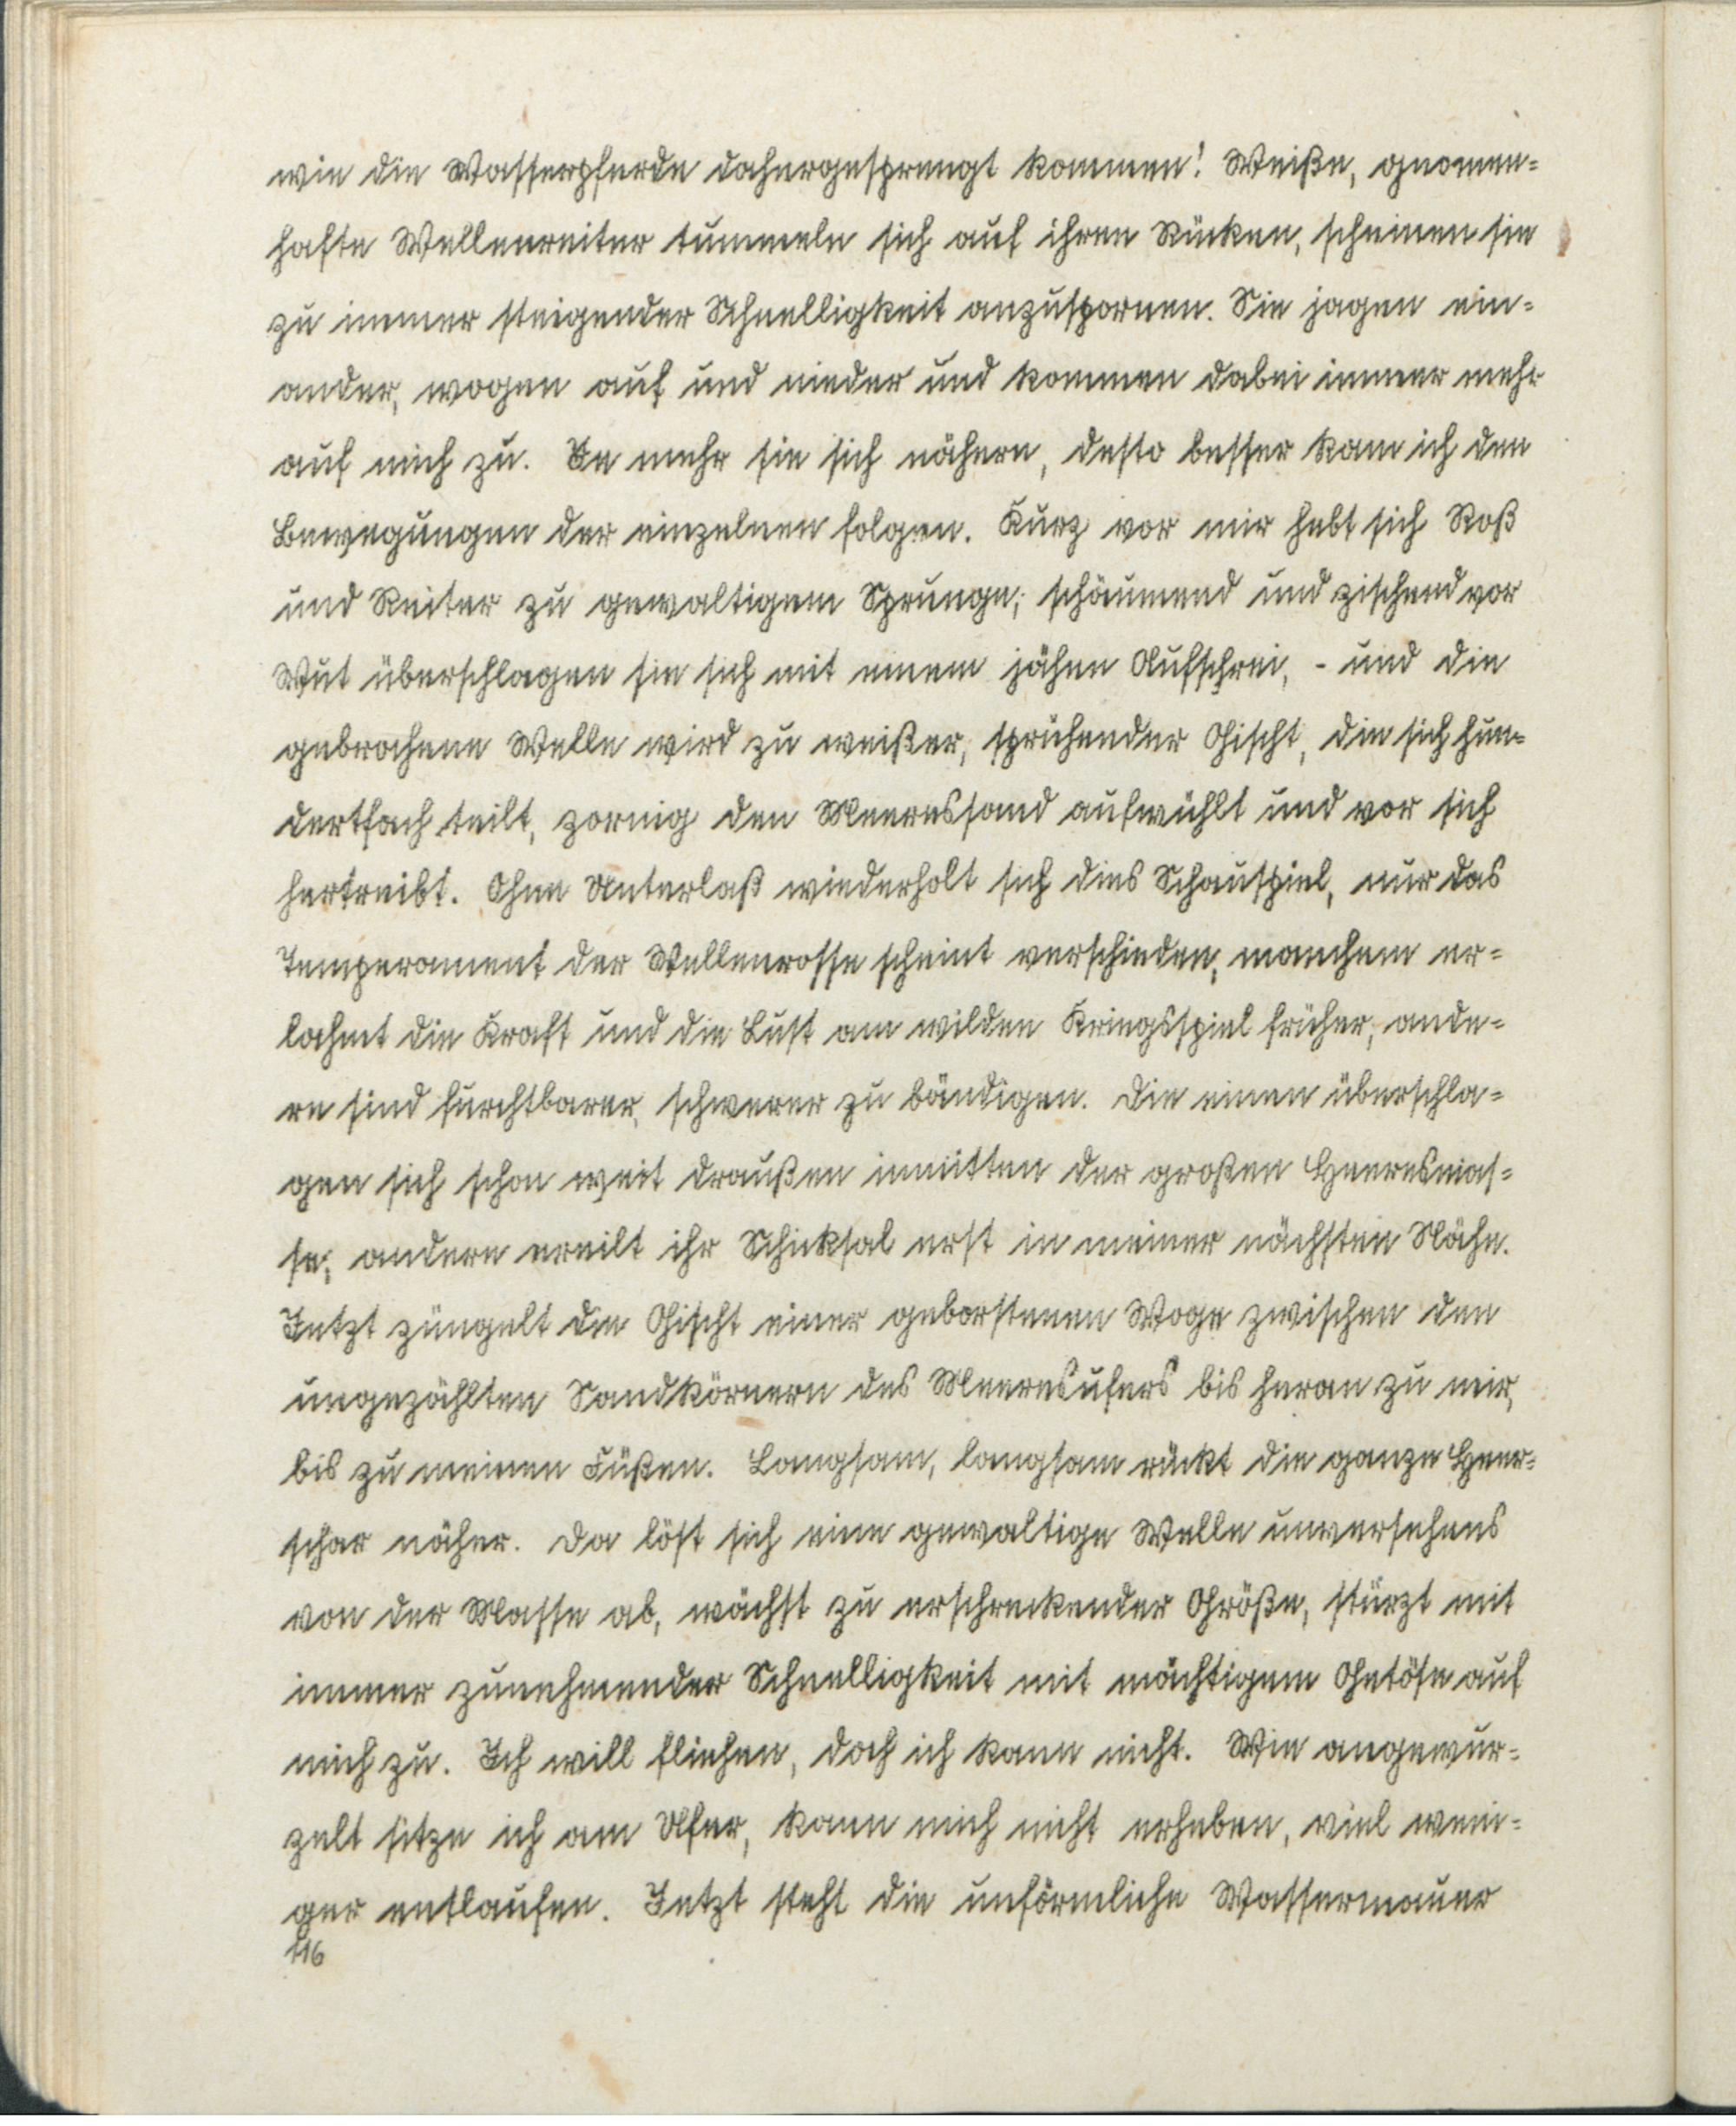 wie die Wasserpferde dahergesprengt kommen! Weiße, gnomen-
hafte Wellenreiter tummeln sich auf ihren Rücken, scheinen sie
zu immer steigender Schnelligkeit anzuspornen. Sie jagen ein-
ander, wogen auf und nieder und kommen dabei immer mehr
auf mich zu. Je mehr sie sich nähern, desto besser kann ich den
Bewegungen der einzelnen folgen. Kurz vor mir hebt sich Roß
und Reiter zu gewaltigem Sprunge; schäumend und zischend vor
Wut überschlagen sie sich mit einem jähen Aufschrei, - und die
gebrochene Welle wird zu weißer, sprühender Gischt, die sich hun-
dertfach teilt, zornig den Meeressand aufwühlt und vor sich
hertreibt. Ohne Unterlaß wiederholt sich dies Schauspiel, nur das
Temperament der Wellenrosse scheint verschieden; manchem er-
lahmt die Kraft und die Lust am wilden Kriegsspiel früher, ande-
re sind furchtbarer, schwerer zu bändigen. Die einen überschla-
gen sich schon weit draußen inmitten der großen Heeresmas-
se; andere ereilt ihr Schicksal erst in meiner nächsten Nähe.
Jetzt züngelt die Gischt einer geborstenen Woge zwischen den
ungezählten Sandkörnern des Meeresufers bis heran zu mir,
bis zu meinen Füßen. Langsam, langsam rückt die ganze Heer-
schar näher. Da löst sich eine gewaltige Welle unversehens
von der Masse ab, wächst zu erschreckender Größe, stürzt mit
immer zunehmender Schnelligkeit mit mächtigem Getöse auf
mich zu. Ich will fliehen, doch ich kann nicht. Wie angewur-
zelt sitze ich am Ufer, kann mich nicht erheben, viel weni-
ger entlaufen. Jetzt steht die unförmliche Wassermauer
116